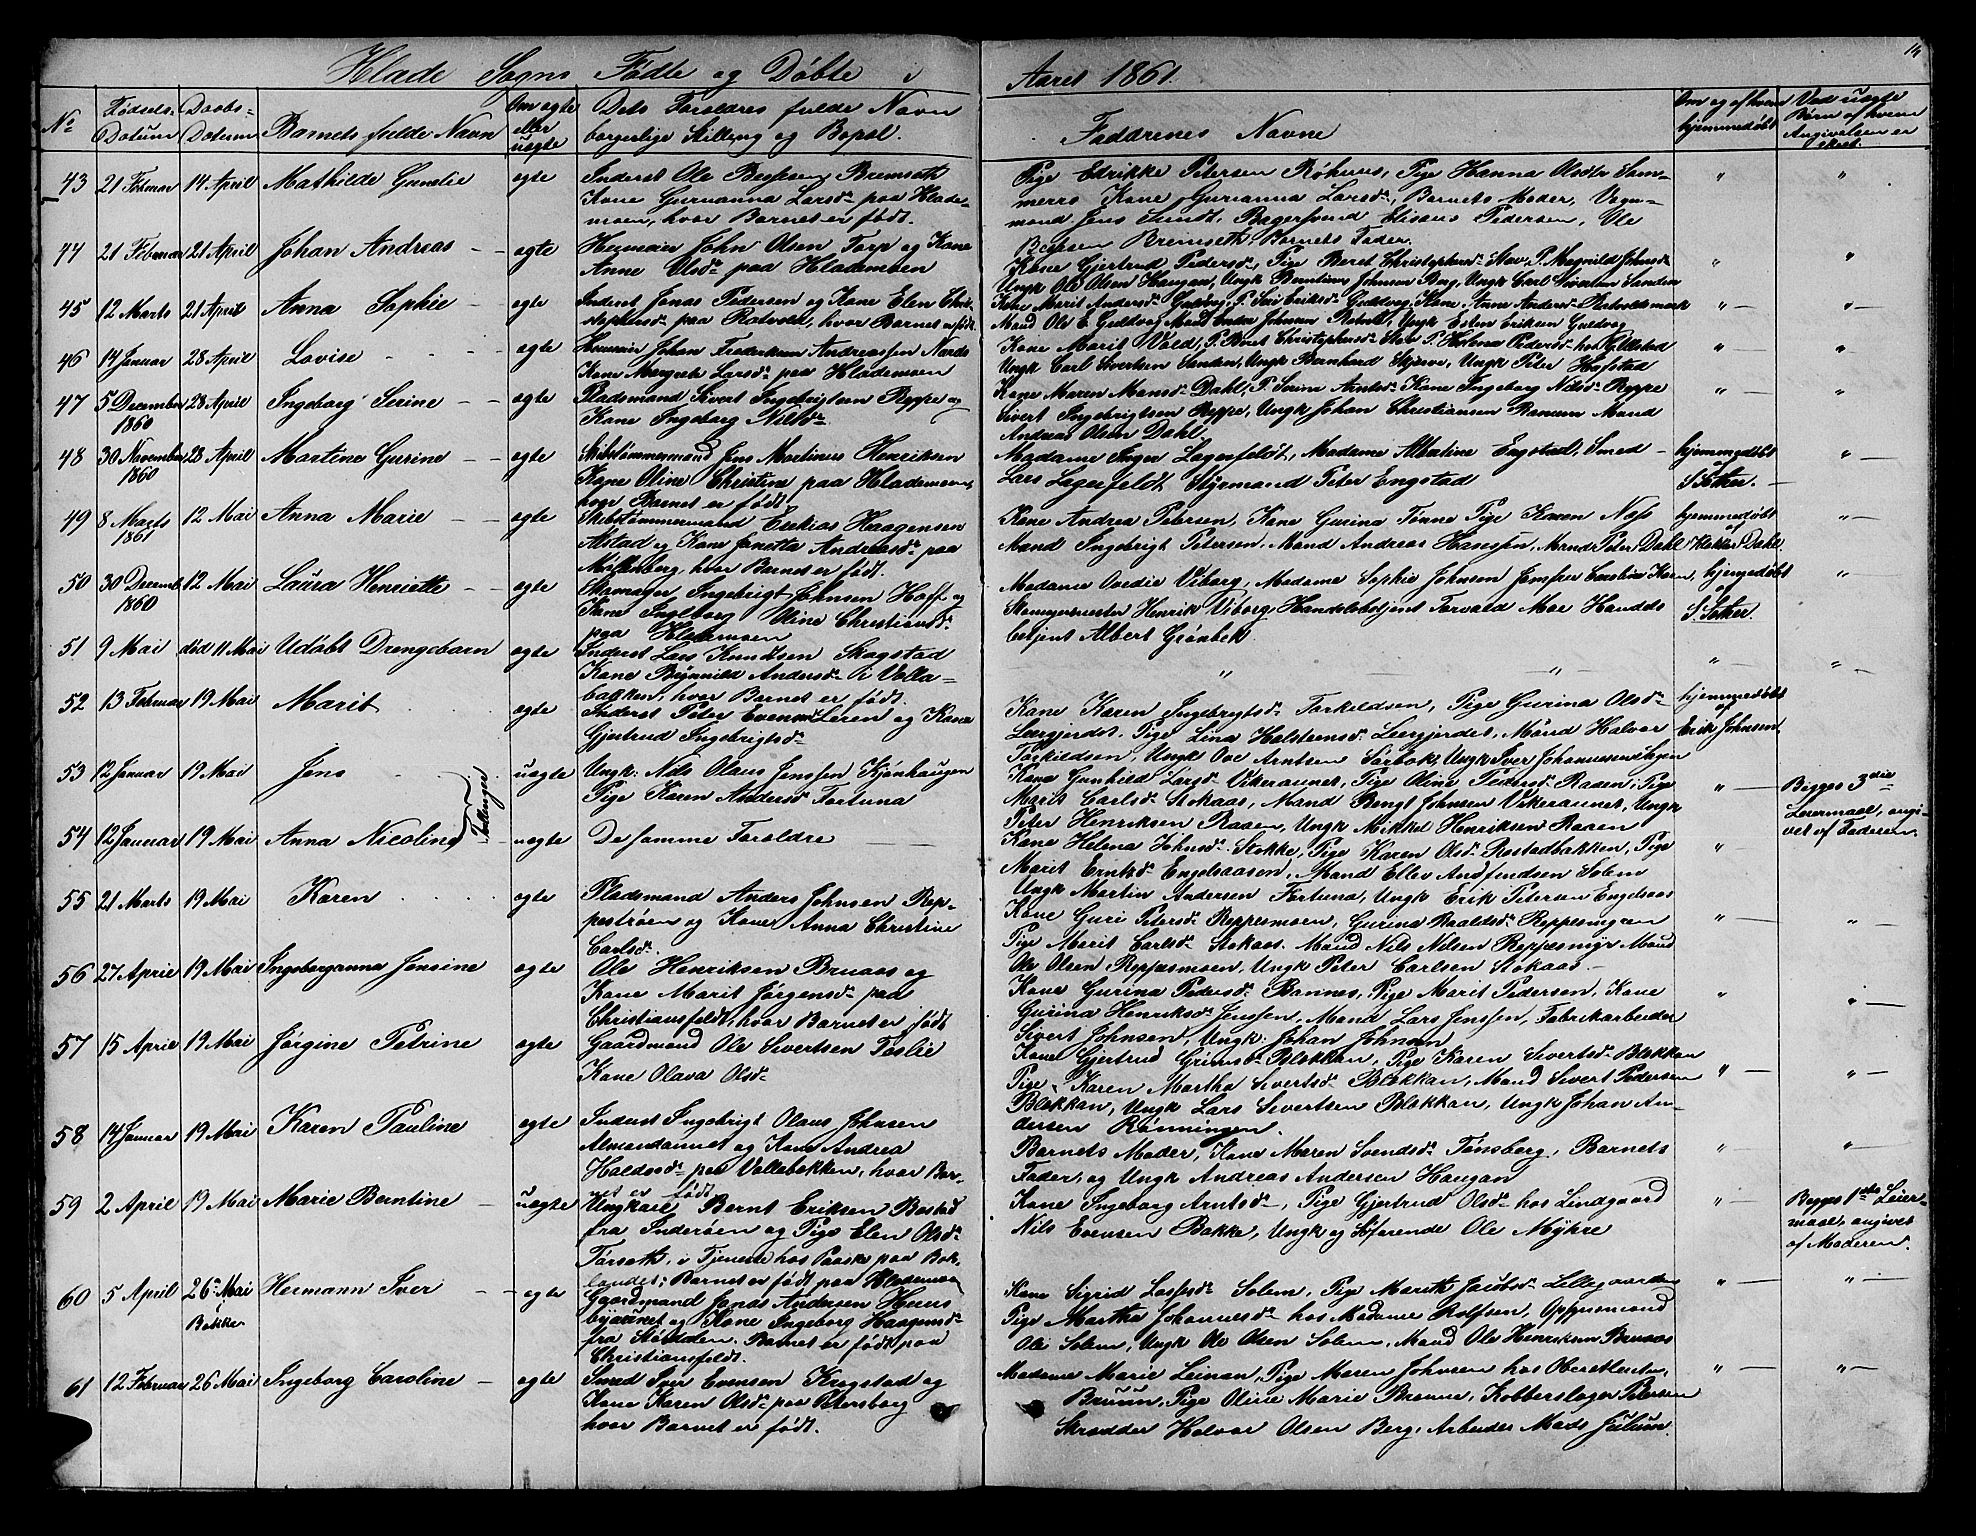 14
Hlade Sogns Fødte og Døbte i Aaret 1861.
No
Fødsels-Datum
Daabs-Datum
Barnets fulde Navn
Om ægte eller uægte
Dets Forældres fulde Navn borgerlige Stilling og Bopæl.
Faddrenes Navne
Om og af hvem hjemmedøbt
Ved uægte Børn af hvem Angivelsen er skeet.
43 21 Februar 14 April Mathilde Gunelie ægte
Inderst Ole Bessesen Bremseth
Kone Gurianna Larsdr paa Hlade-
moen, hvor Barnet er født.
Pige Edrikke Petersen Røhnes, Pige Hanna Olsdtr Sam-
merro Kone Gurianna Larsdr, Barnets Moder, Vogn-
mand Jens Lundt, Bagersvend Elisæus Pedersen, Ole
Bessesen Bremseth, Barnets Fader.
44 21 Februar 21 April Johan Andreas ægte
Huuseier John Olsen Torp og Kone
Anne Olsdr paa Hlademoen
Kone Gjertrud Pedersdr, Pige Beret Christophersdr Stav, P. Magnild Johnsdr
Ungk Ole Olsen Haugan, Ungk Berntinus Johnsen Berg, Ungk Carl Sivertsen Sanden
45 12 Marts 21 April Anna Sophie ægte
Inderst Jonas Pedersen og Kone Elen Chri-
stophersdr paa Rotvold, hvor Barnet er født
Kone Marit Andersdr Guldvog, P. Siri Eriksdr Guldvog, Kone Anne Andersdr Rotvoldsmark
Mand Ole E. Guldvog Mand Ender Johnsen Rotvold, Ungk Esten Eriksen Guldvog
46 14 Januar 28 April Lovise ægte
Huuseier Johan Frederiksen Andreassen Nords
Kone Margrete Larsdr paa Hlademoen
Kone Marit Vold, P. Beret Christophersdr Stav P. Helena Pedersdr hos Kolstad
Ungk Carl Sivertsen Sanden, Ungk Bernhard Skjerve, Ungk Peter Hofstad
47 5 December 1860 28 April Ingeborg Serine ægte
Pladsmand Sivert Ingebrigtsen Reppe og
Kone Ingeborg Nilsdr
Kone Maren Monsdr Dahl, P. Serine Arntsdr Kone Ingeborg Nilsdr Reppe
Sivert Ingebrigtsen Reppe, Ungk Johan Christiansen Ranum Mand
Andreas Olsen Dahl.
48 30 November 1860 28 April Martine Gusine ægte
Skibstømmermand Jens Martinus Henriksen
Kone Oline Christine paa Hlademoen,
hvor Barnet er født
Madame Inger Lagerfeldt, Madame Albertine Engstad, Smed
Lars Lagerfeldt Styrmand Peter Engstad
hjemmedøbt af S. Sther.
49 8 Marts 1861 12 Mai Anna Marie ægte
Skibstømmermand Esekias Haagensen
Alstad og Kone Janetta Andreasdr paa
Møllenberg, hvor Barnet er født.
Kone Andrea Petersen, Kone Gurina Tønne Pige Karen Næss
Mand Ingebrigt Petersen, Mand Andreas Hanssen, Mand Peter Dahl
hjemmedøbt af Klokker Dahl
50 30 Decemb 1860 12 Mai Laura Henriette ægte
Skomager Ingebrigt Johnsen Hoff og
Kone Ingeborg Oline Christiansdr
paa Hlademoen
Madame Ovedie Viborg, Madame Sophie Johnsen, Jomfru Caroline Karn,
Skomagermester Henrik Viborg, Handelsbetjent Torvald Moe Handels
betjent Albert Grønbek
hjemmedøbt af S. Sther.
51 9 Mai død 11 Mai Udøbt Drengebarn ægte
Inderst Lars Knudsen Skogstad
Kone Brynnild Andersdr i Volla-
bakken, hvor Barnet er født.
52 13 Februar 19 Mai Marit ægte
Inderst Peter Evensen Leren og Kone
Gjertrud Ingebrigtsdr
Kone Karen Ingebrigtsdr Torkildsen, Pige Gurina Olsdr
Leergjerdet, Pige Lina Halstensdr Leergjerdet, Mand Halvor
Torkildsen, Ungk Ove Arntsen Sørbok, Ungk Iver Johannessen Skjen
hjemmedøbt af Erik Johnsen
53 12 Januar 19 Mai Jens uægte
Ungk: Nils Olaus Jenssen Kjønhaugen
Pige Karen Andersdr Fortuna
Kone Gunhild Larsdr Vikeraunet, Pige Oline Pedersdr Raaen, Pige
Marit Carlsdr Stokaas, Mand Bengt Johnsen Vikeraunet, Ungk
Peter Henriksen Raaen, Ungk Mikkel Henriksen Raaen
Begges 3die Leiermaal, angivet af Faderen.
Tvillinger
54 12 Januar 19 Mai Anna Nicoline uægte
De samme Forældre
Kone Helena Johnsdr Stokke, Pige Karen Olsdr Rostadbakken, Pige
Marit Erntsdr Engelsaasen, Mand Ellev Andfindsen Solem
Ungk Martin Andersen Fortuna, Ungk Erik Petersen Engelsaas
55 21 Marts 19 Mai Karen ægte
Pladsmand Anders Johnsen Rep-
pestrøen og Kone Anna Christine
Carlsdr
Kone Guri Petersdr Reppesmoen, Gurina Roaldsdr Reppesmyren
Pige Marit Carlsdr Stokaas. Mand Nils Nilsen Reppesmyr Mand
Ole Olsen Reppesmoen, Ungk Peter Carlsen Stokaas
56 27 April 19 Mai Ingeborganna Jensine ægte
Ole Henriksen Bruaas og
Kone Marit Jørgensdr paa
Christiansfeldt, hvor Barnet er født
Kone Gurina Pedersdr Bannes, Pige Marit Pedersen, Kone
Gurina Henriksdr Jenssen, Mand Lars Jenssen, Fabrikarbeider
Sivert Johnsen, Ungk: Johan Johnsen
57 15 April 19 Mai Jørgine Petrine ægte
Gaardmand Ole Sivertsen Teslie
Kone Olava Olsdr
Kone Gjertrud Grimsdr Blekkan, Pige Karen Sivertsdr Blekkan
Pige Karen Martha Sivertsdr Blekkan, Mand Sivert Pedersen
Blekkan, Ungk Lars Sivertsen Blekkan, Ungk Johan An-
dersen Rønningen.
58 14 Januar 19 Mai Karen Pauline ægte
Inderst Ingebrigt Olaus Johnsen
Almondaunet og Kone Andrea
Haldosdr paa Vollabakken, hvor Bar-
net er født
Barnets Moder, Kone Maren Svendsdr Tønsberg, Barnets
Fader, og Ungk Andreas Andersen Haugan
59 2 April 19 Mai Marie Berntine uægte
Ungkarl Bernt Eriksen Bostad
fra Inderøen og Pige Elen Olsdr
Forseth, i Tjeneste hos Paaske paa Bak-
landet; Barnet er født paa Hlademoen
Kone Ingeborg Arntsdr, Pige Gjertrud Olsdr hos Lindgaard
Nils Evensen Bakke, Ungk og Søfarende Ole Myhre
Begges 1ste Leier-
maal, angivet
af Moderen.
60 5 April 26 Mai i Bakke Hermann Iver ægte
Gaardmand Jonas Andersen Huus-
byaunet og Kone Ingeborg Haagensdr
fra Størdalen. Barnet er født paa
Christiansfeldt.
Kone Sigrid Lassesdr Solem, Pige Mareth Jacobsdr Lillegaarden
Pige Martha Johannesdr hos Madame Rolfsen, Oppesmand
Ole Solem, Ungk Ole Olsen Solem, Mand Ole Henriksen Bruaas
61 12 Februar 26 Mai Ingeborg Caroline ægte
Smed Iver Evensen Krogstad og
Kone Karen Olsdr paa Petersborg
hvor Barnet er født.
Madame Marie Leinan, Pige Maren Johnsen hos Oberstlieutn.
Bruun, Pige Oline Marie Brenne, Kobberslager Petersen
Skrædder Halvor Olsen Berg, Arbeider Mads Julum.